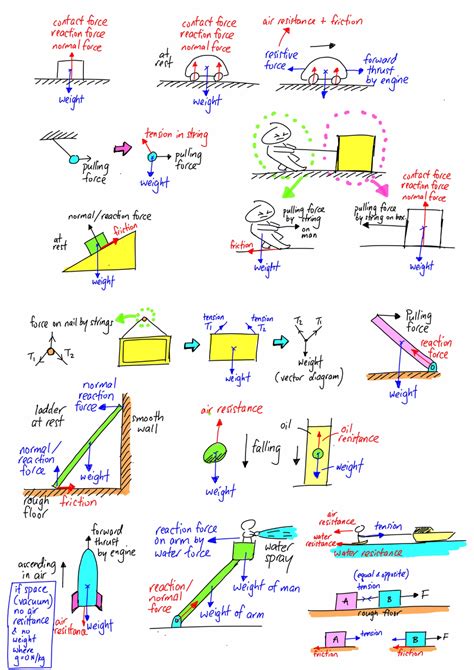 contact force
reaction force
normal force
weight
at
rest
contact force
reaction force
normal force
weight
air resistance + friction
resistive
force
forward
thrust
by engine
weight
pulling
force
tension in string
pulling
force
weight
at
rest
normal/reaction force
friction
weight
pulling force
by string
on
man
friction
weight
contact force
reaction force
normal force
pulling force
by string on box
weight
force on nail by strings
T₁
T₂
tension
T₁
tension
T₂
weight
T₂
T₁
weight
(vector diagram)
Pulling
force
reaction
force
weight
normal
reaction
force
ladder
at rest
smooth
wall
normal/
reaction
force
weight
rough
floor
friction
air resistance
falling
weight
oil
oil
resistance
weight
ascending
in air
forward
thrust
by engine
if space
(vacuum)
no air
resistance
& no
weight
where
g=0N/kg
air
resistance
weight
reaction force
on arm by
water force
water
spray
reaction/
normal
force
weight of man
weight of arm
air
resistance
tension
water resistance
water resistance
(equal & opposite)
tension
A
B
F
rough floor
tension
A
B
F
friction
friction